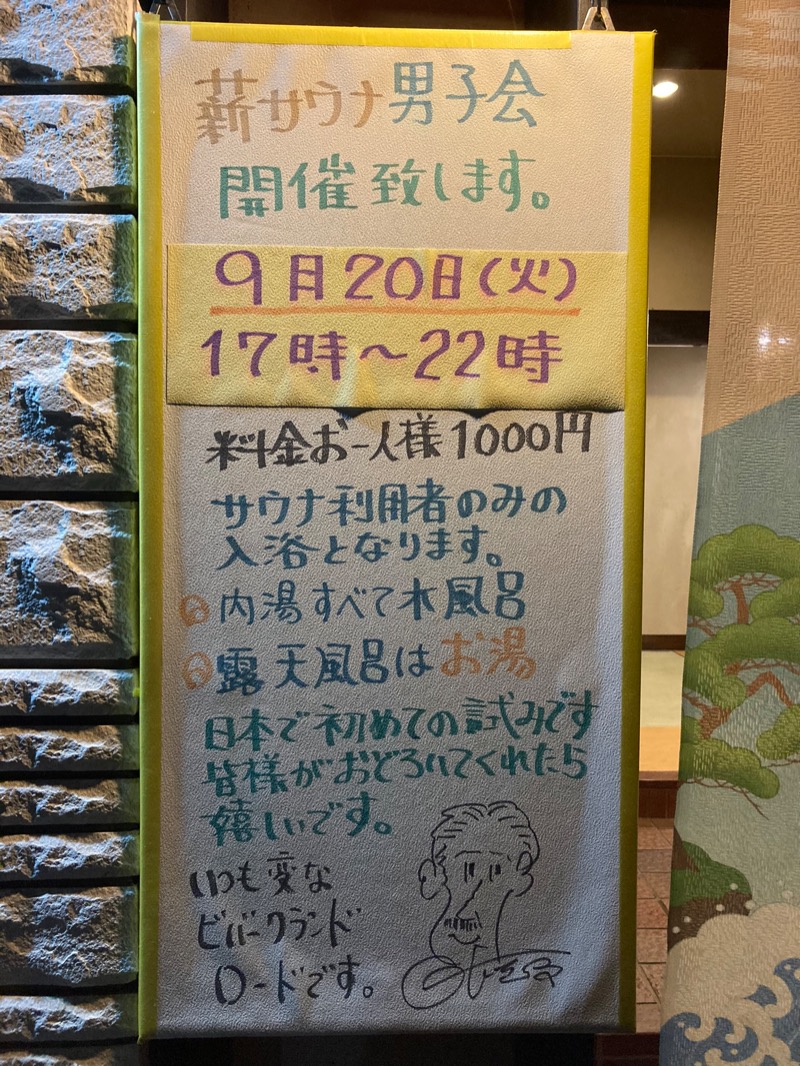 薪サウナ男子会
開催致します。
9月20日(火)
17時~22時
料金お一人様1000円
サウナ利用者のみの
入浴となります。
内湯すべて水風呂
露天風呂はお湯
日本で初めての試みです
皆様がおどろいてくれたら
嬉しいです。
いつも変な
ビバークランド
ロードです。